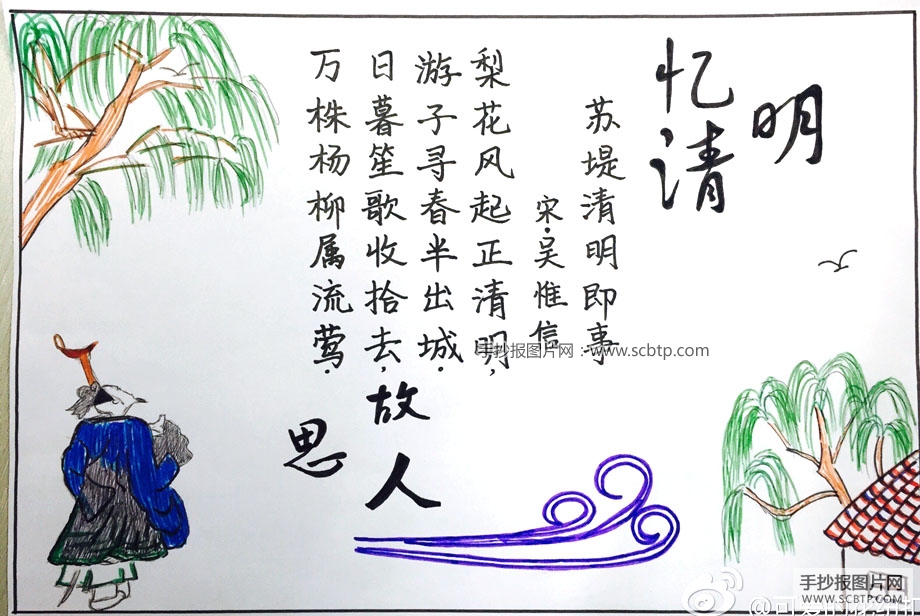 忆清明
苏堤清明即事
宋·吴惟信
梨花风起正清明，
游子寻春半出城。
日暮笙歌收拾去，
万株杨柳属流莺。
思故人
手抄报图片网：www.scbtp.com
手抄报图片网
WWW.SCBTP.COM